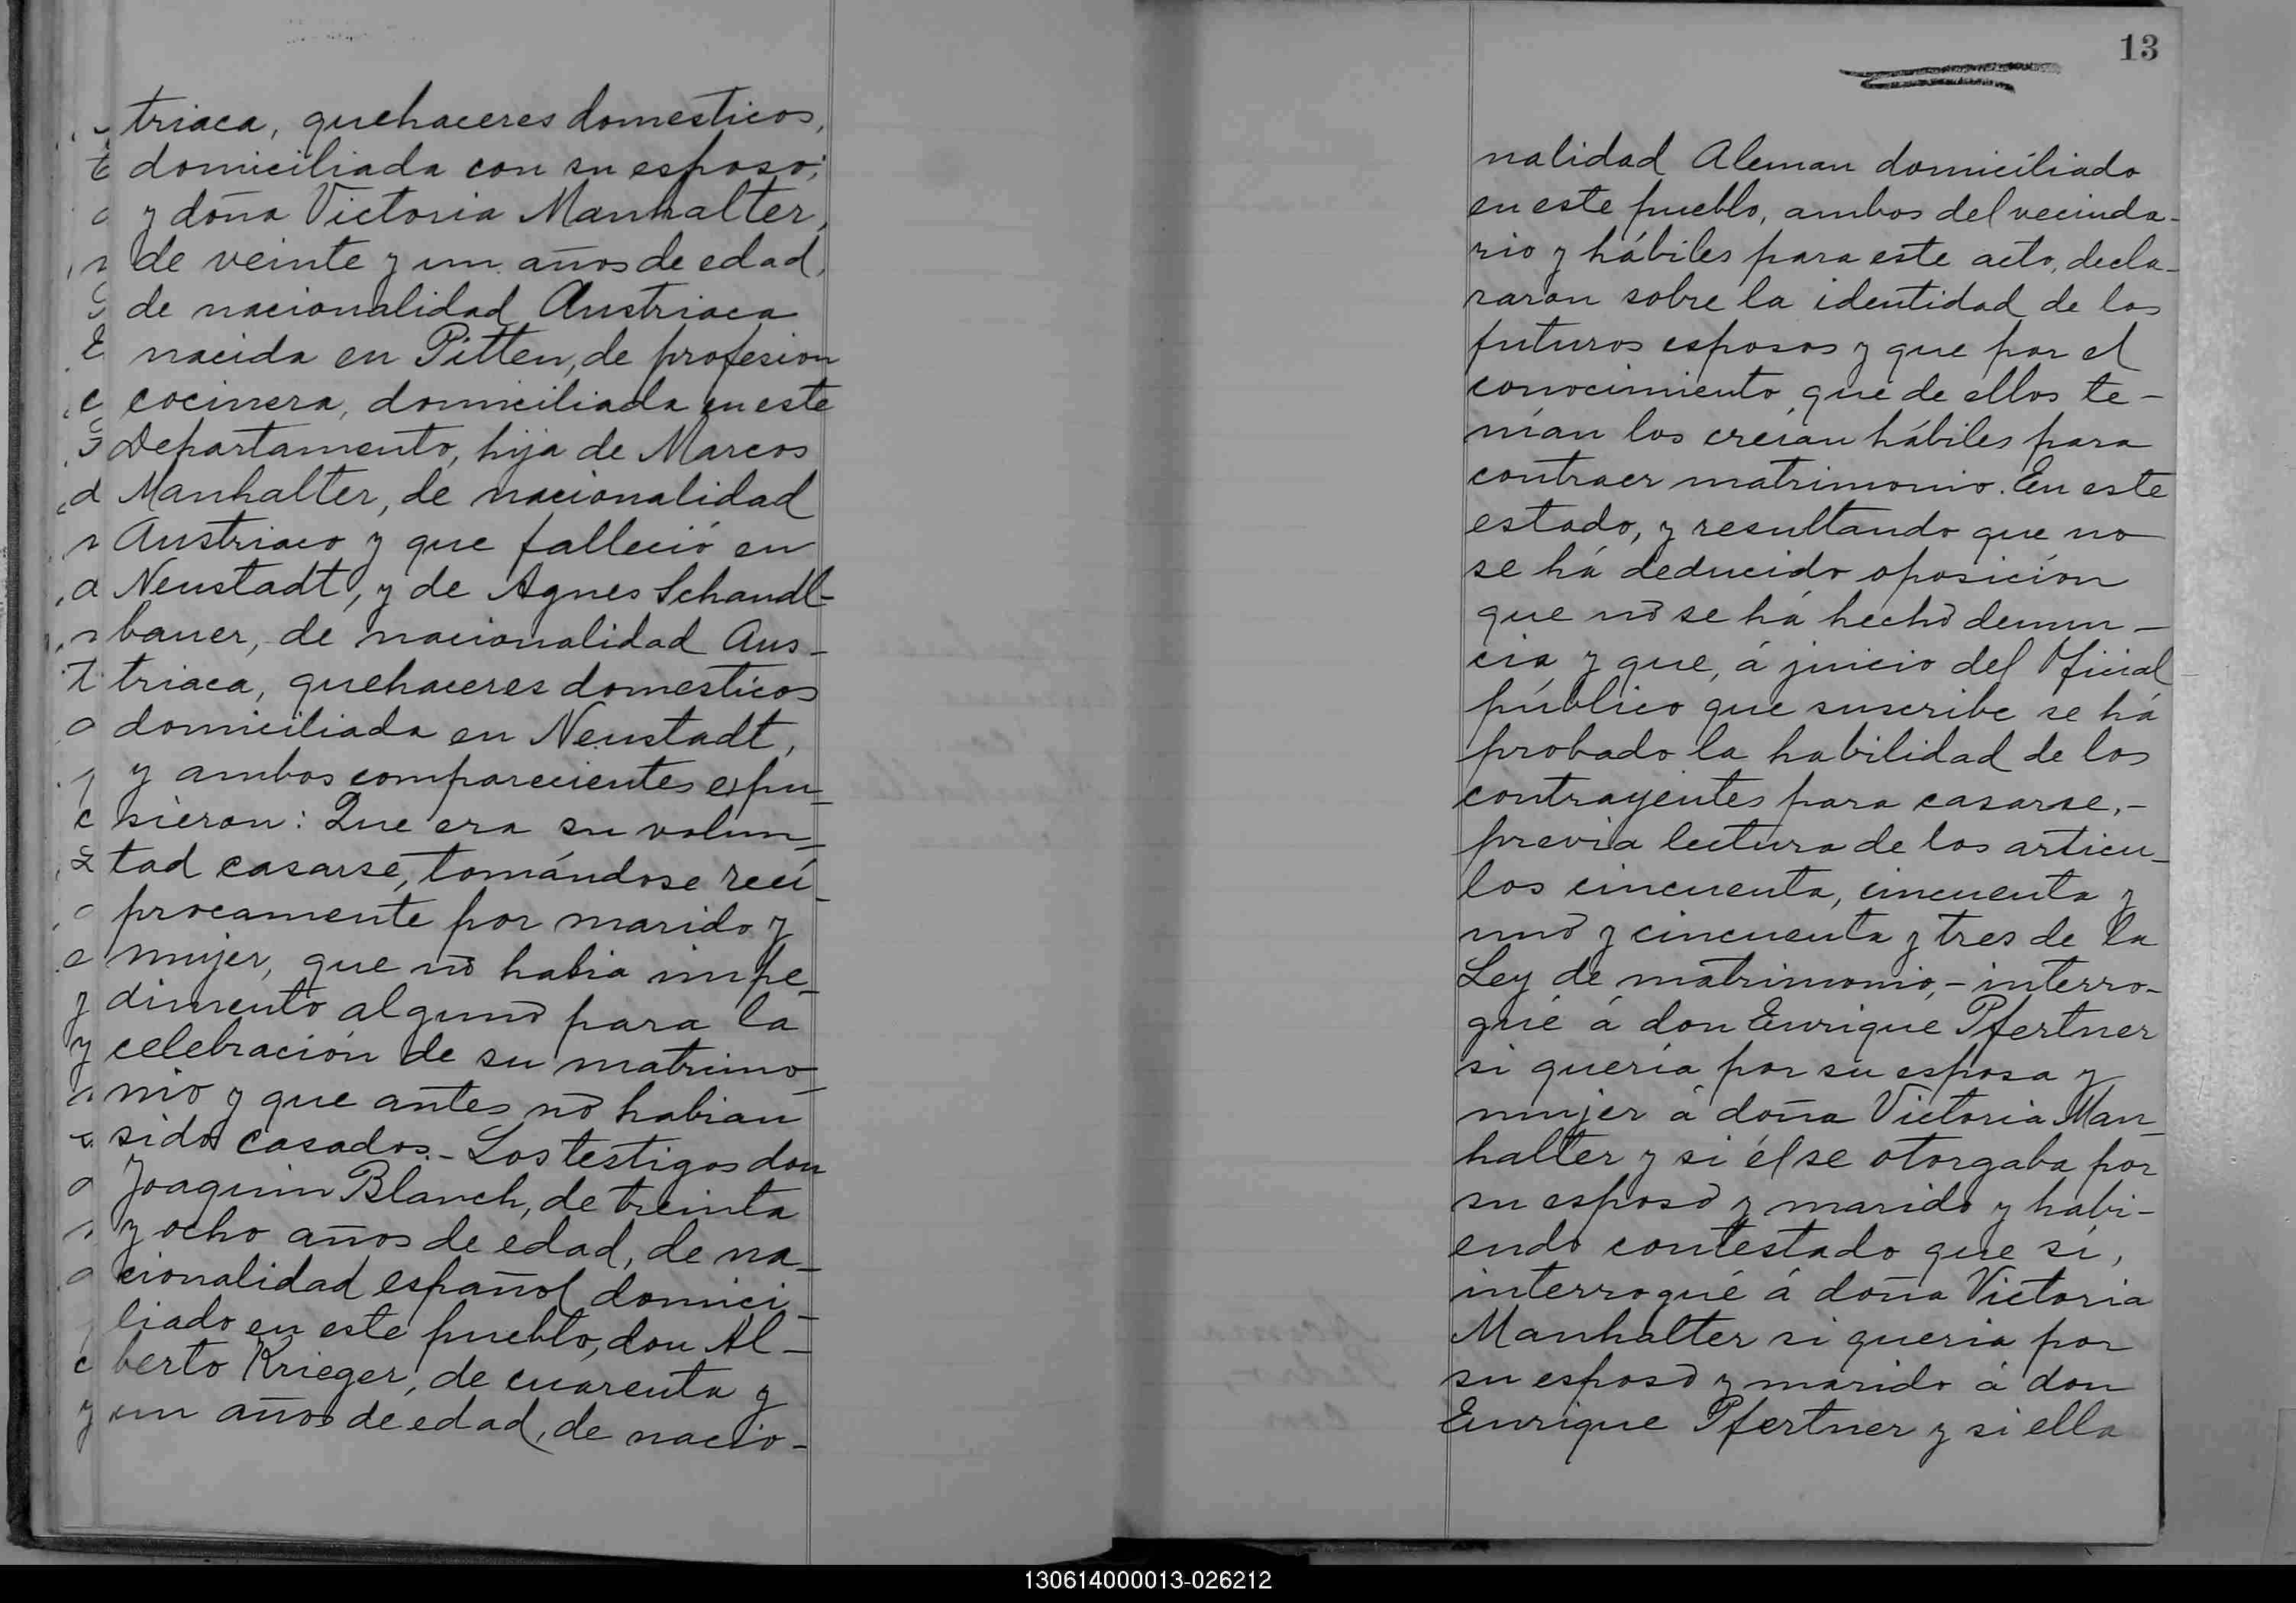 triaca, quehaceres domesticos,
domiciliada con su esposo;
y doña Victoria Manhalter,
de veinte y un años de edad,
de nacionalidad Austriaca
nacida en Pitten, de profesion
cocinera, domiciliada en este
Departamento, hija de Marcos
Manhalter, de nacionalidad
Austriaco y que falleció en
Neustadt, y de Agnes Schandl-
bauer, de nacionalidad Aus-
triaca, quehaceres domesticos
domiciliada en Neustadt,
y ambos comparecientes expu-
sieron: Que era su volun-
tad casarse, tomándose recí-
procamente por marido y
mujer, que nó habia impe-
dimento alguno para la
celebración de su matrimo-
nio y que antes nó habian
sido casados.- Los testigos don
Joaquin Blanch, de treinta
y ocho años de edad, de na-
cionalidad español domici-
liado en este pueblo, don Al-
berto Krieger, de cuarenta y
un años de edad, de nacio-
13
nalidad Aleman domiciliado
en este pueblo, ambos del vecinda-
rio y hábiles para este acto, decla-
raron sobre la identidad de los
futuros esposos y que por el
conocimiento que de ellos te-
nían los creían hábiles para
contraer matrimonio. En este
estado, y resultando que no
se há deducido oposición
que nó se há hecho denun-
cia y que, á juicio del Oficial
público que suscribe se há
probado la habilidad de los
contrayentes para casarse,-
previa lectura de los articu-
los cincuenta, cincuenta y
uno y cincuenta y tres de la
Ley de matrimonio,- interro-
gué á don Enrique Pfertner
si quería por su esposa y
mujer á doña Victoria Man-
halter y si él se otorgaba por
su esposo y marido y habi-
endo contestado que sí,
interrogué á doña Victoria
Manhalter si queria por
su esposo y marido á don
Enrique Pfertner y si ella
130614000013-026212